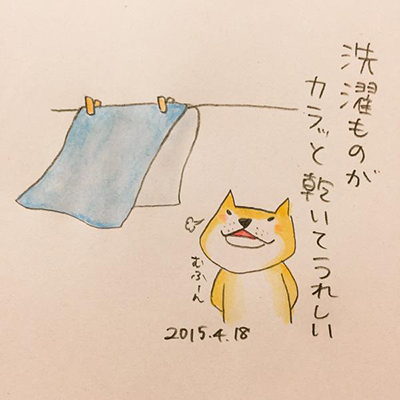 洗濯ものが
カラッと乾いてうれしい
むふーん
2015.4.18